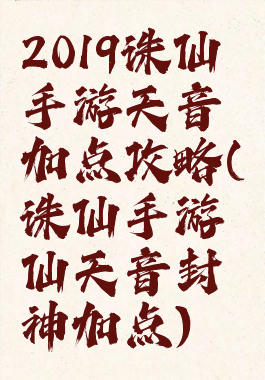 2019诛仙
手游天音
加点攻略(
诛仙手游
仙天音封
神加点)